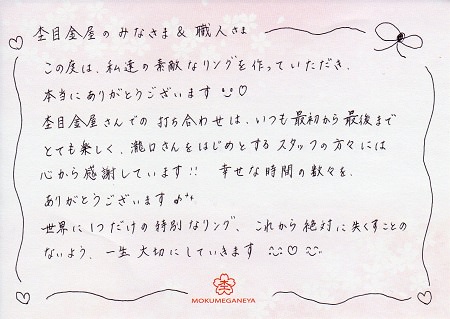 杢目金屋のみなさま & 職人さま
この度は、私達の素敵なリングを作っていただき、
本当にありがとうございます
杢目金屋さんでの打ち合わせは、いつも最初から最後まで
とても楽しく、瀧口さんをはじめとするスタッフの方々には
心から感謝しています!! 幸せな時間の数々を、
ありがとうございます
世界に1つだけの特別なリング、これから絶対に失くすことの
ないよう、一生大切にしていきます
MOKUMEGANEYA